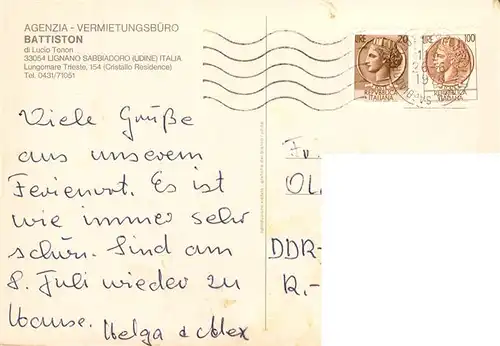 AGENZIA - VERMIETUNGSBÜRO
BATTISTON
di Lucio Tonon
33054 LIGNANO SABBIADORO (UDINE) ITALIA
Lungomare Trieste, 154 (Cristallo Residence)
Tel. 0431/71051
LIRE 20
REPVBBLICA
ITALIANA
LIRE 100
REPVBBLICA
ITALIANA
Viele Grüße
aus unserem
Ferienort. Es ist
wie immer sehr
schön. Sind am
8. Juli wieder zu
Hause. Helga & Alex
OL
DDR-